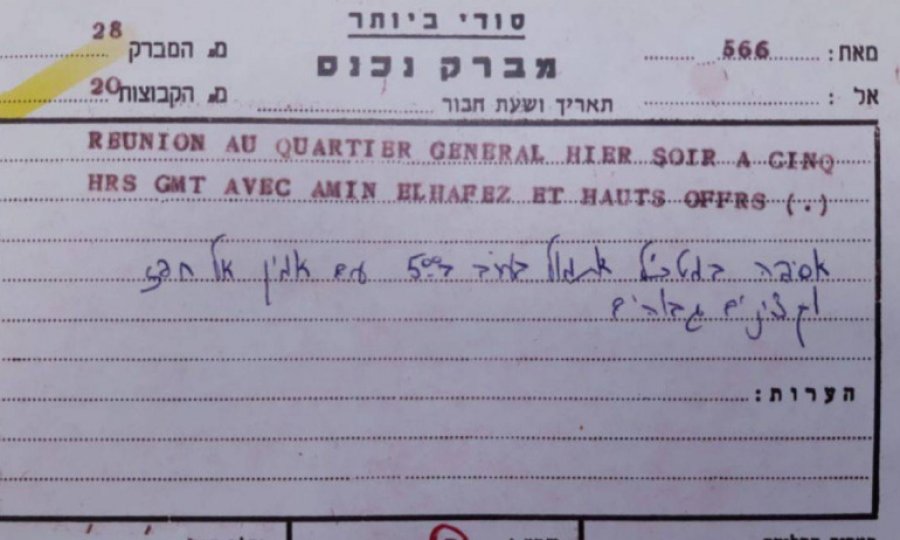 סודי ביותר
מברק נכנס
מאת: 566
מ. המברק 28
אל:
תאריך ושעת חבור
מ. הקבוצות 20
REUNION AU QUARTIER GENERAL HIER SOIR A CINQ
HRS GMT AVEC AMIN ELHAFEZ ET HAUTS OFFRS (.)
אסיפה במטכ"ל אתמול בערב ב 5⁰⁰ עם אמין אל חפז
וקצינים גבוהים
הערות: